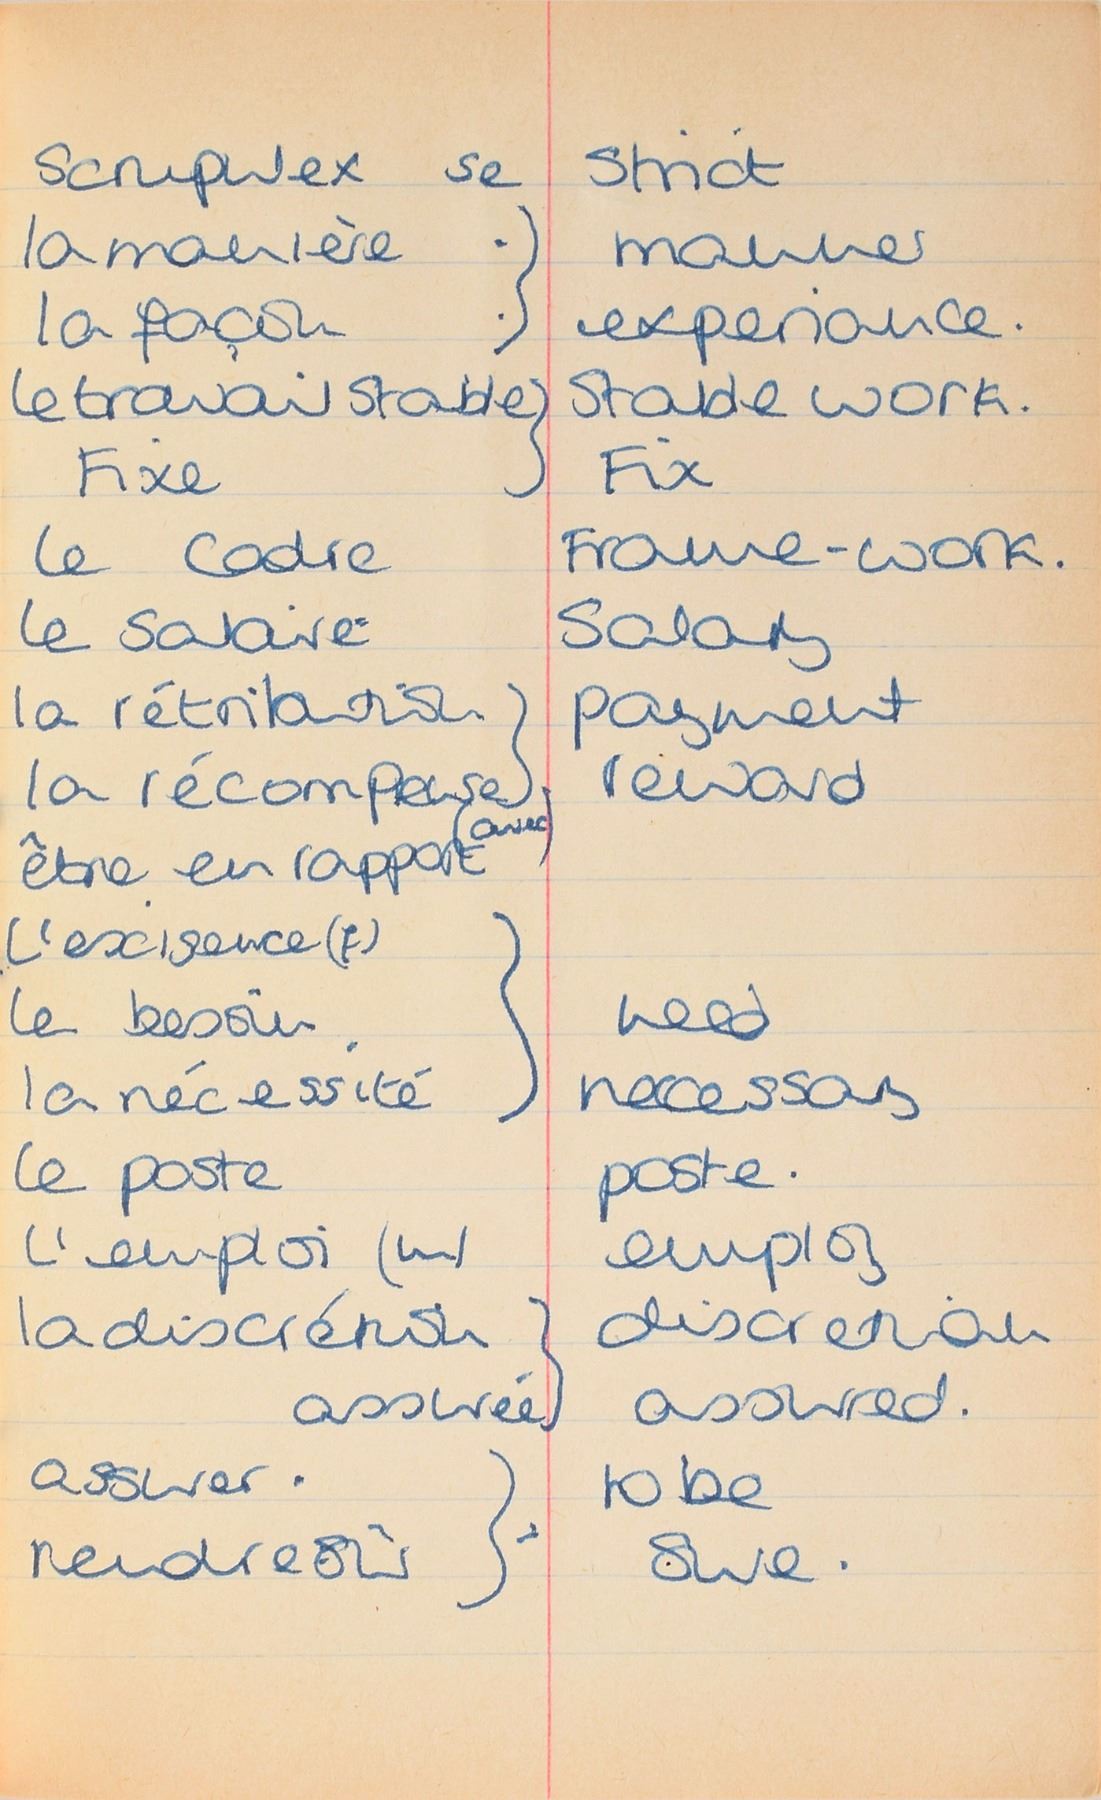 Scrupulex se Strict
la manière manner
la façon experiance.
le travail stable Stable work.
Fixe Fix
le Cadre Frame-work.
le Salaire Salary
la rétribution payment
la récompense reward
(avec)
être en rapport
L'exigence (f)
le besoin need
la nécessité neccessary
le poste poste.
L'emploi (m) employ
la discrétion discretion
assurée assured.
assurer. to be
rendre sûr sure.